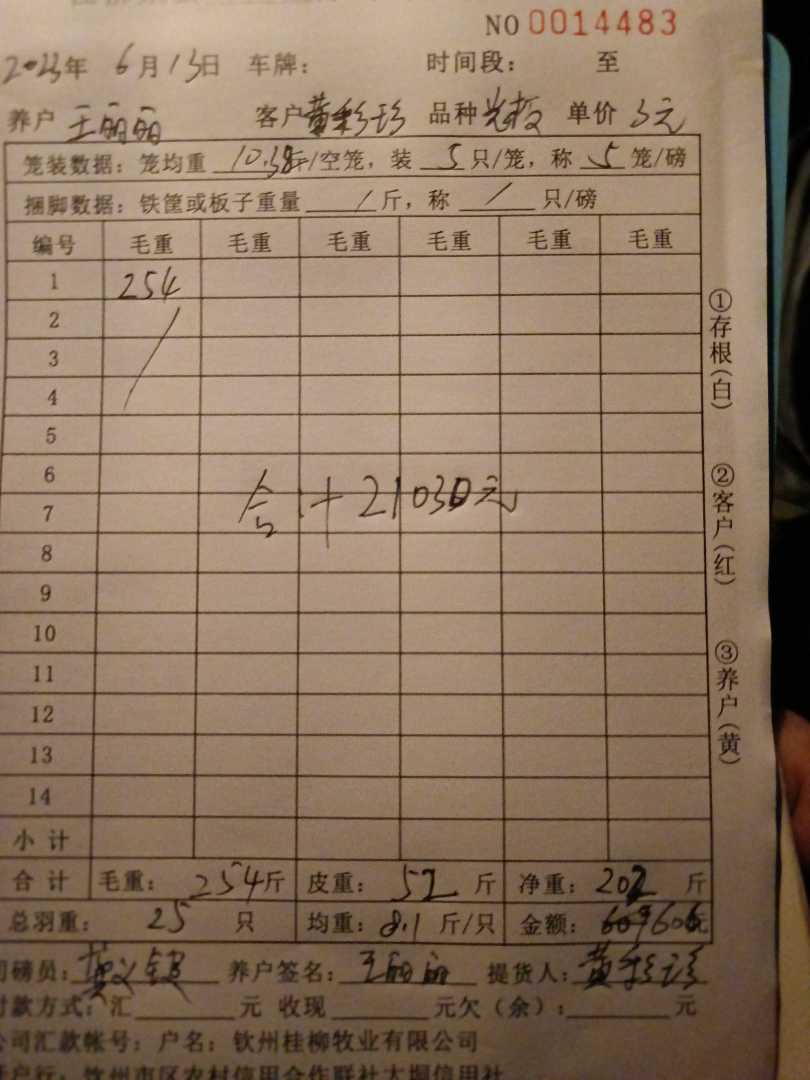 NO 0014483
2023年 6月13日 车牌： 时间段： 至
养户 王丽丽 客户 黄彩珍 品种 单价 3元
笼装数据：笼均重 10.38斤/空笼，装 5 只/笼，称 5 笼/磅
捆脚数据：铁筐或板子重量 / 斤，称 / 只/磅
编号 毛重 毛重 毛重 毛重 毛重 毛重
1 254
2
3
4
5
6
合计21030元
7
8
9
10
11
12
13
14
小计
合计 毛重： 254斤 皮重： 52 斤 净重： 202 斤
总羽重： 25 只 均重： 8.1 斤/只 金额： 606元
司磅员： 养户签名：王丽丽 提货人：黄彩珍
付款方式：汇 元 收现 元欠（余）： 元
公司汇款帐号：户名：钦州桂柳牧业有限公司
开户行：钦州市区农村信用合作联社大垌信用社
①存根（白）
②客户（红）
③养户（黄）